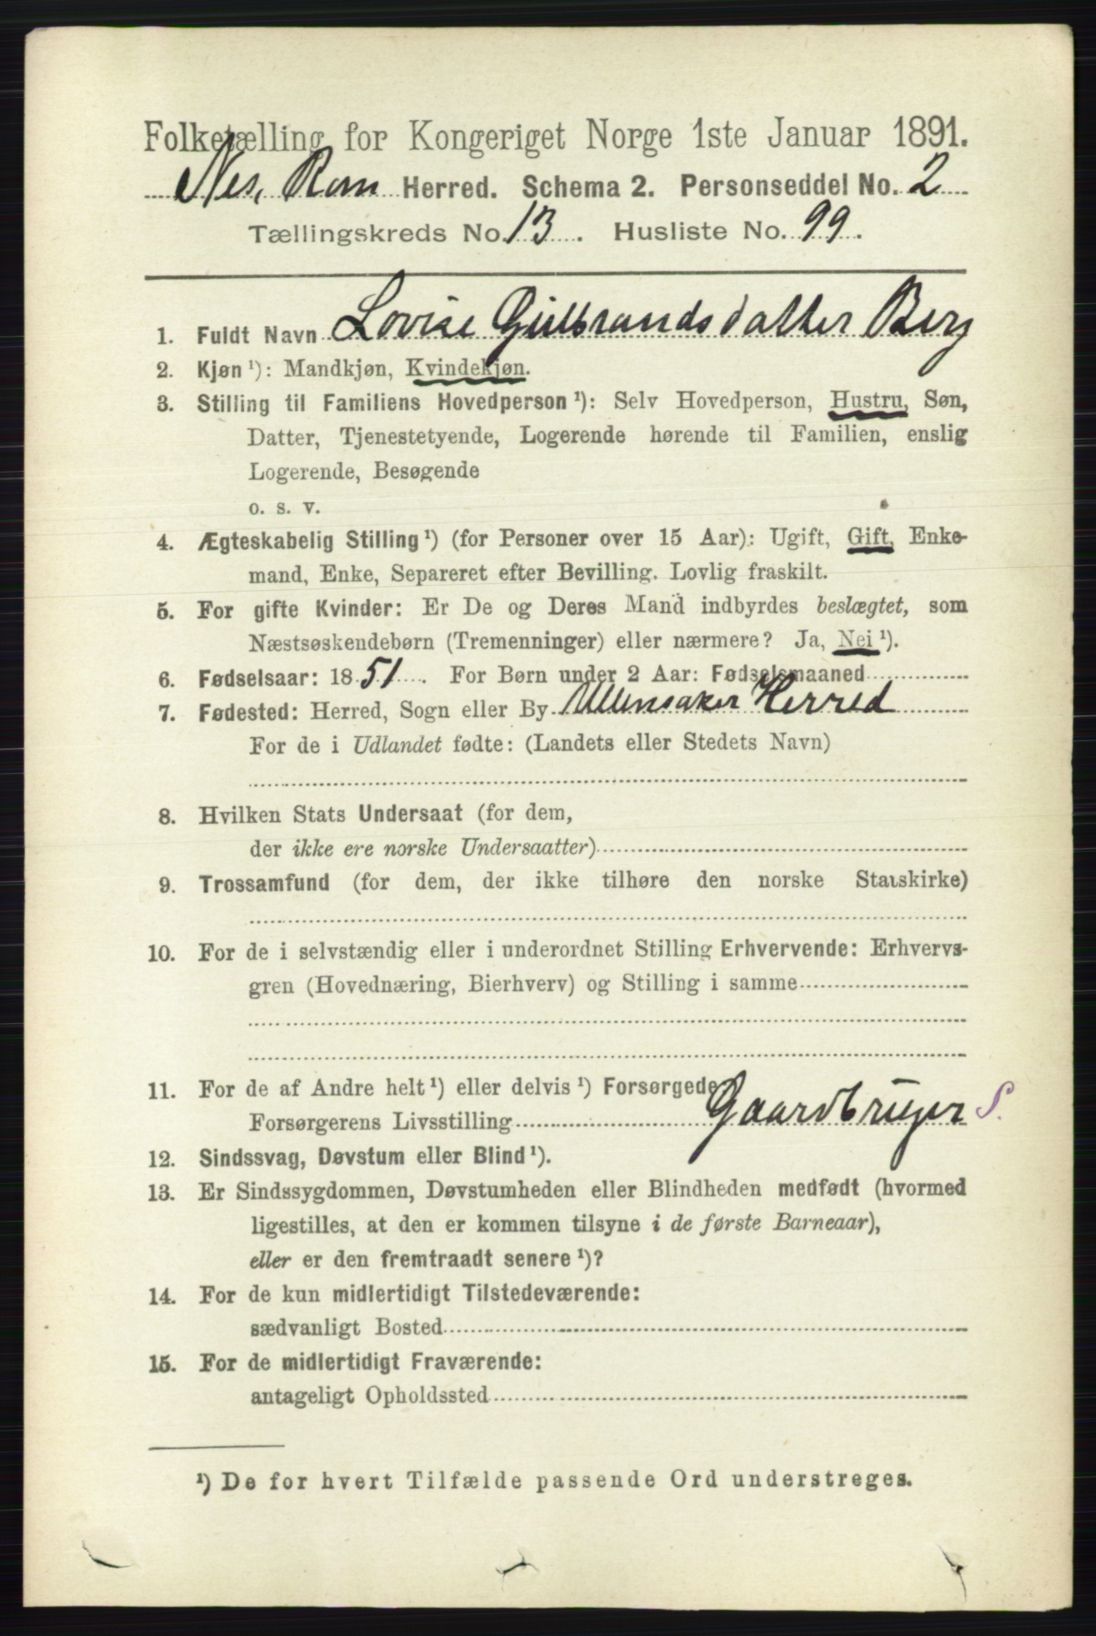 Folketælling for Kongeriget Norge 1ste Januar 1891.
Nes, Rom Herred. Schema 2. Personseddel No. 2
Tællingskreds No. 13. Husliste No. 99.
1. Fuldt Navn Lovise Gulbrandsdatter Berg
2. Kjøn ¹): Mandkjøn, Kvindekjøn.
3. Stilling til Familiens Hovedperson ¹): Selv Hovedperson, Hustru, Søn,
Datter, Tjenestetyende, Logerende hørende til Familien, enslig
Logerende, Besøgende
o. s. v.
4. Ægteskabelig Stilling ¹) (for Personer over 15 Aar): Ugift, Gift, Enke-
mand, Enke, Separeret efter Bevilling. Lovlig fraskilt.
5. For gifte Kvinder: Er De og Deres Mand indbyrdes beslægtet, som
Næstsøskendebørn (Tremenninger) eller nærmere? Ja, Nei ¹).
6. Fødselsaar: 1851. For Børn under 2 Aar: Fødselsmaaned
7. Fødested: Herred, Sogn eller By Ullensaker Herred
For de i Udlandet fødte: (Landets eller Stedets Navn)
8. Hvilken Stats Undersaat (for dem,
der ikke ere norske Undersaatter)
9. Trossamfund (for dem, der ikke tilhøre den norske Statskirke)
10. For de i selvstændig eller i underordnet Stilling Erhvervende: Erhvervs-
gren (Hovednæring, Bierhverv) og Stilling i samme
11. For de af Andre helt ¹) eller delvis ¹) Forsørgede
Forsørgerens Livsstilling Gaardbruger S.
12. Sindssvag, Døvstum eller Blind ¹).
13. Er Sindssygdommen, Døvstumheden eller Blindheden medfødt (hvormed
ligestilles, at den er kommen tilsyne i de første Barneaar),
eller er den fremtraadt senere ¹)?
14. For de kun midlertidigt Tilstedeværende:
sædvanligt Bosted
15. For de midlertidigt Fraværende:
antageligt Opholdssted
¹) De for hvert Tilfælde passende Ord understreges.